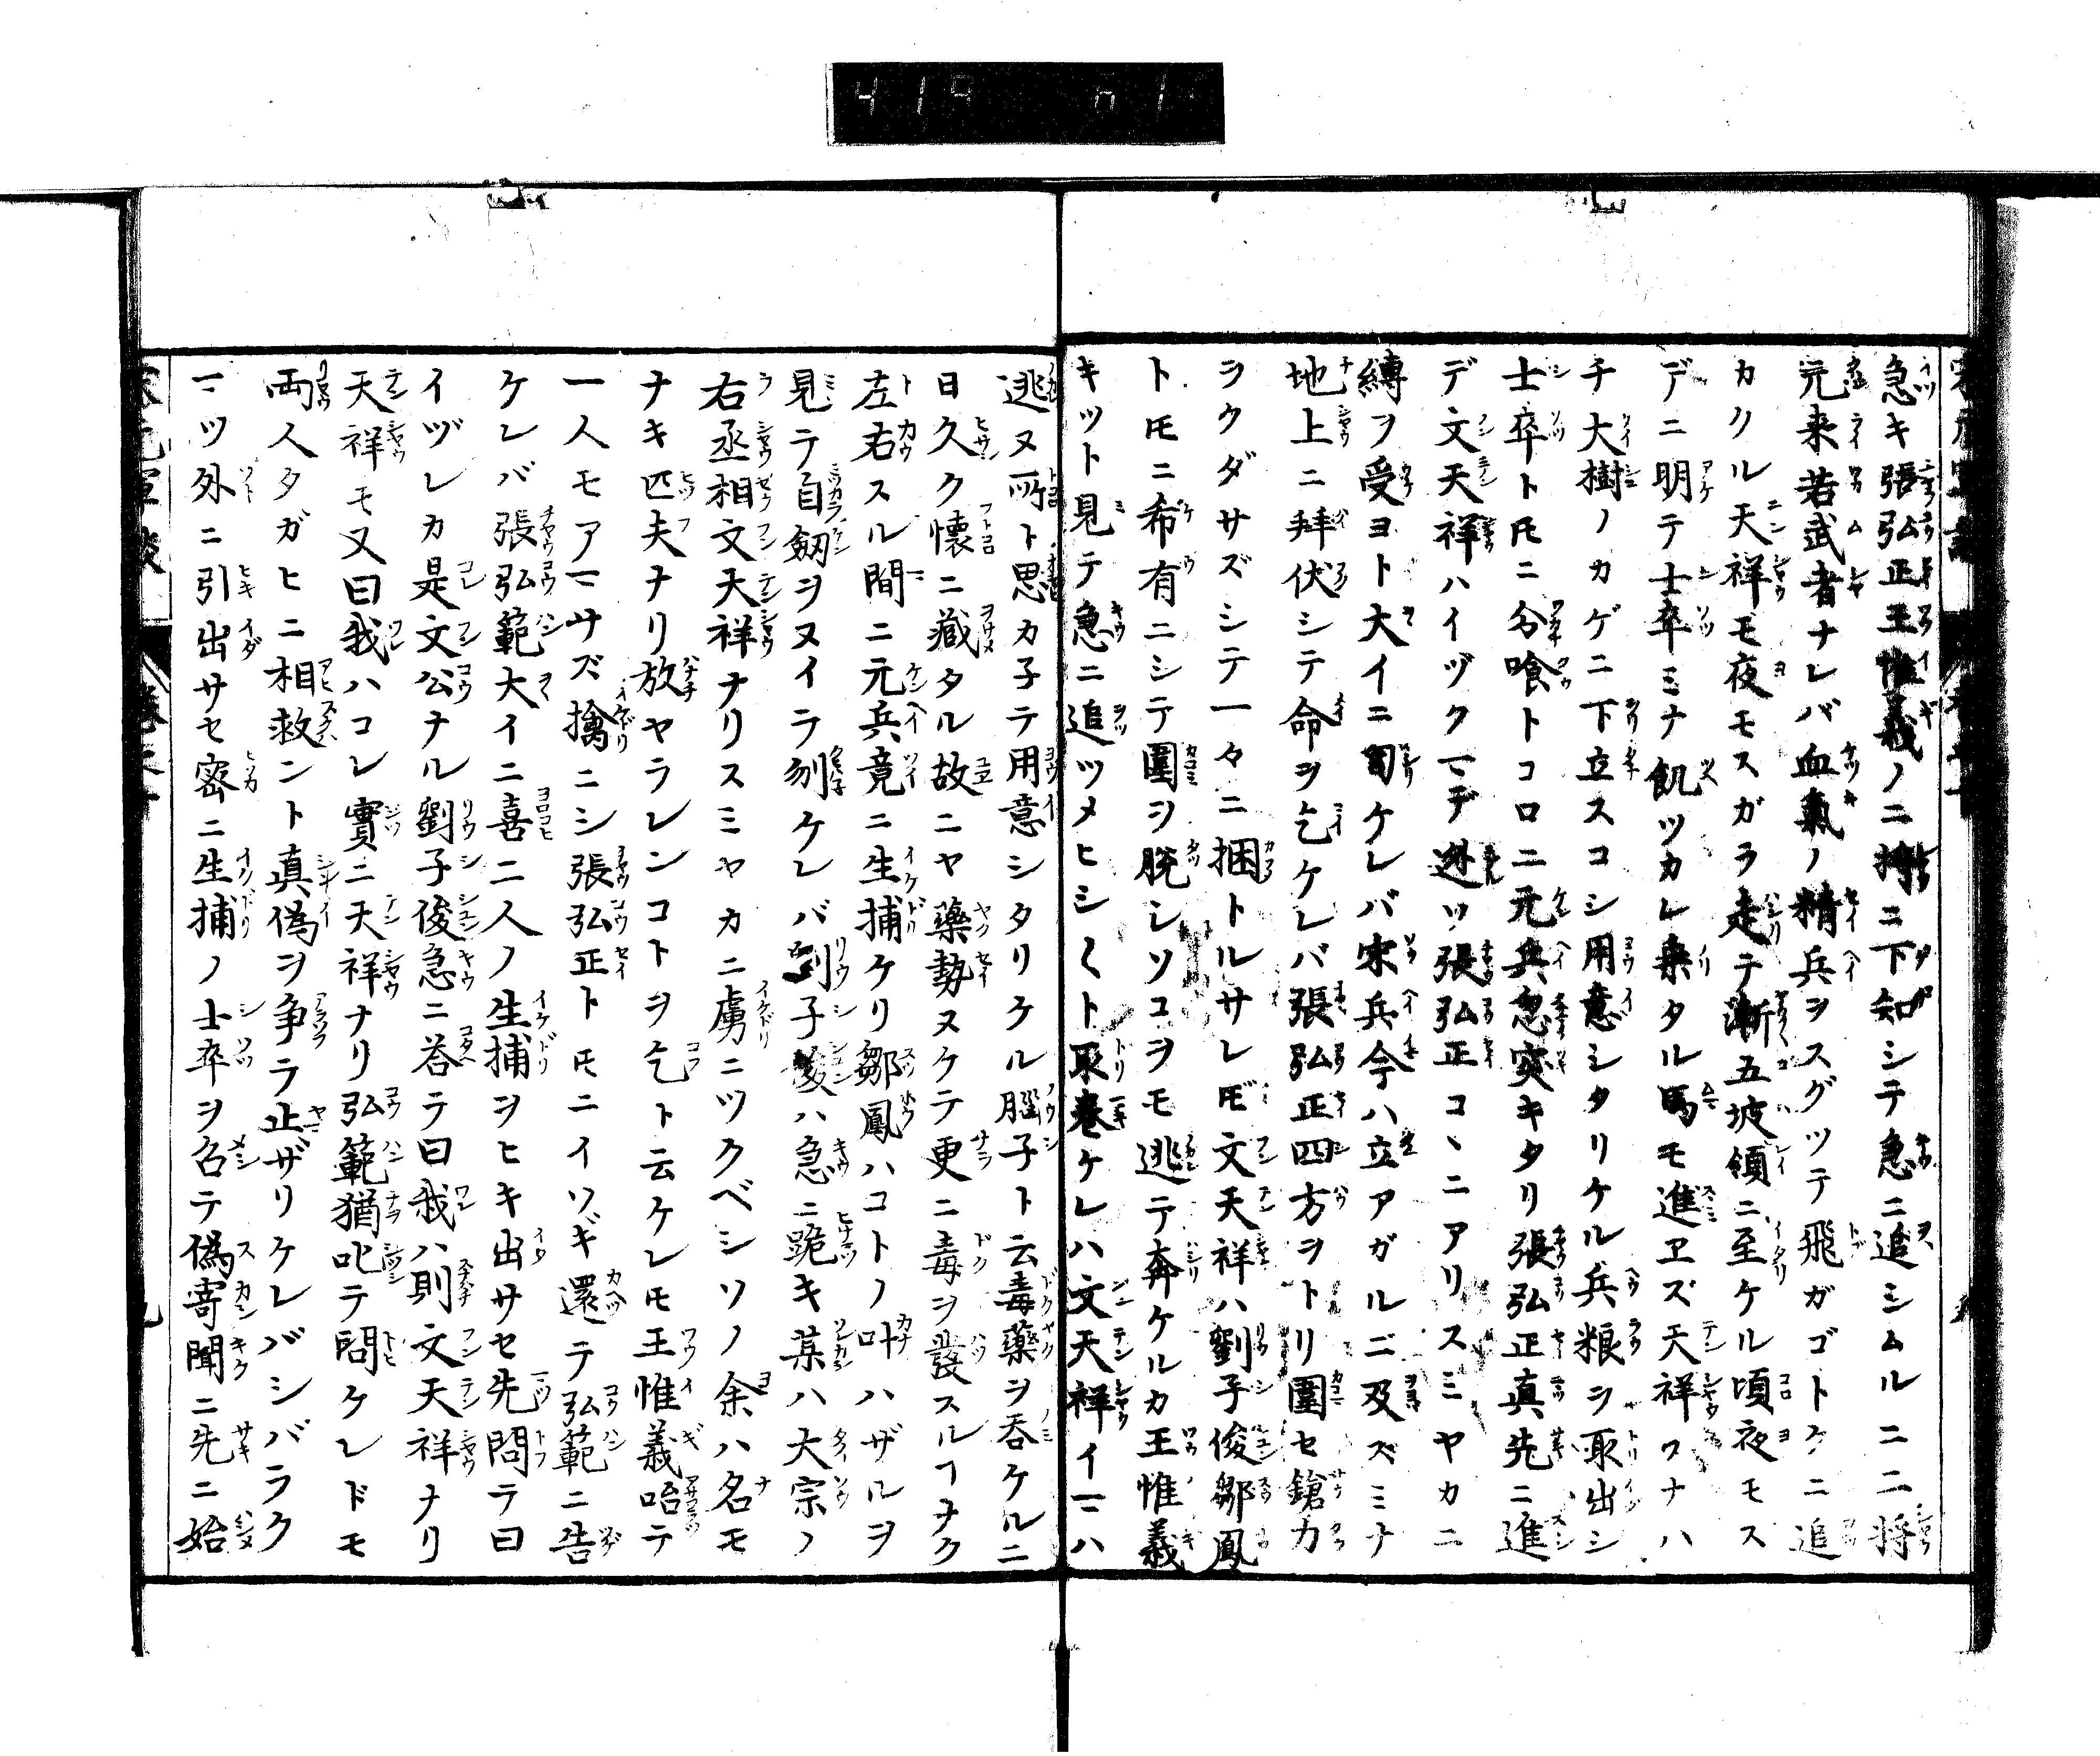 急キ張弘正王惟義ノ二将ニ下知シテ急ニ追シムルニ二将
元来若武者ナレバ血氣ノ精兵ヲスグツテ飛ガゴトクニ追
カクル天祥モ夜モスガラ走テ漸五坡嶺ニ至ケル頃夜モス
デニ明テ士卒ミナ飢ツカレ乗タル馬モ進ヱズ天祥ワナハ
チ大樹ノカゲニ下立スコシ用意シタリケル兵粮ヲ取出シ
士卒トモニ分喰トコロニ元兵忽突キタリ張弘正真先ニ進
デ文天祥ハイヅクマデ迯ツ張弘正コヽニアリスミヤカニ
縛ヲ受ヨト大イニ罵ケレバ宋兵今ハ立アガルニ及ズミナ
地上ニ拜伏シテ命ヲ乞ケレバ張弘正四方ヲトリ圍セ鎗カ
ヲクダサズシテ一々ニ捆トルサレドモ文天祥ハ劉子俊鄒鳳
トモニ希有ニシテ圍ヲ脱シソコヲモ逃テ奔ケルカ王惟義
キツト見テ急ニ追ツメヒシ〱ト取巻ケレハ文天祥イマハ
逃ヌ所ト思カ子テ用意シタリケル腦子ト云毒藥ヲ呑ケルニ
日久ク懐ニ藏タル故ニヤ藥勢ヌケテ更ニ毒ヲ發スルヿナク
左右スル間ニ元兵竟ニ生捕ケリ鄒鳳ハコトノ叶ハザルヲ
見テ自剱ヲヌイテ刎ケレバ劉子俊ハ急ニ跪キ某ハ大宗ノ
右丞相文天祥ナリスミヤカニ虜ニツクベシソノ余ハ名モ
ナキ匹夫ナリ放ヤラレンコトヲ乞ト云ケレモ王惟義咍テ
一人モアマサズ擒ニシ張弘正トモニイソギ還テ弘範ニ告
ケレバ張弘範大イニ喜二人ノ生捕ヲヒキ出サセ先問テ曰
イヅレカ是文公ナル劉子俊急ニ答テ曰我ハ則文天祥ナリ
天祥モ又曰我ハコレ實ニ天祥ナリ弘範猶叱テ問ケレドモ
両人タガヒニ相救ント真偽ヲ争ラ止ザリケレバシバラク
マヅ外ニ引出サセ密ニ生捕ノ士卒ヲ召テ偽寄聞ニ先ニ始